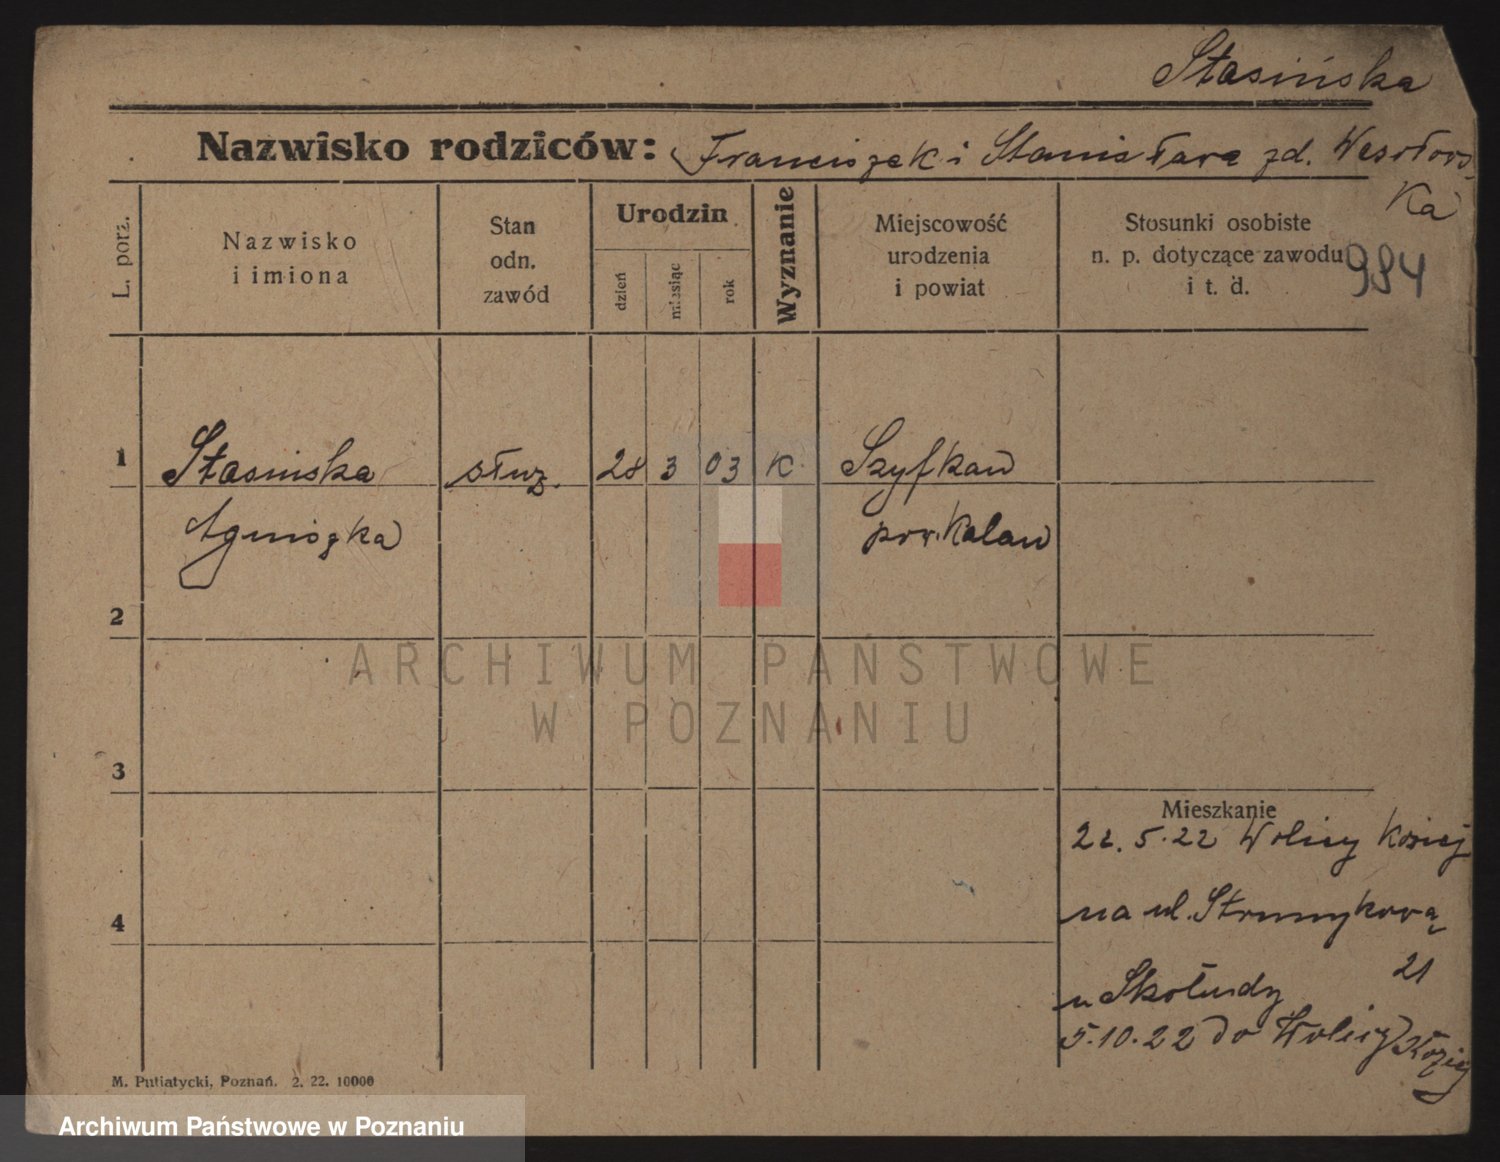 Stasińska
Nazwisko rodziców: Franciszek i Stanisława zd. Wesołows
ka
L. porz.
Nazwisko
i imiona
Stan
odn.
zawód
Urodzin
dzień
miesiąc
rok
Wyznanie
Miejscowość
urodzenia
i powiat
Stosunki osobiste
n. p. dotyczące zawodu
i t. d.
984
1 Stasinska służ. 28 3 03 K. Szyfkaw
Agniszka pow. Kalaw
2
3
4
ARCHIWUM PAŃSTWOWE
W POZNANIU
Mieszkanie
22. 5. 22 Wolicy Koziej
na ul. Strumykową
21
u Skołudy
5.10.22 do Wolicy Koziej
M. Putiatycki, Poznań. 2. 22. 10000
Archiwum Państwowe w Poznaniu